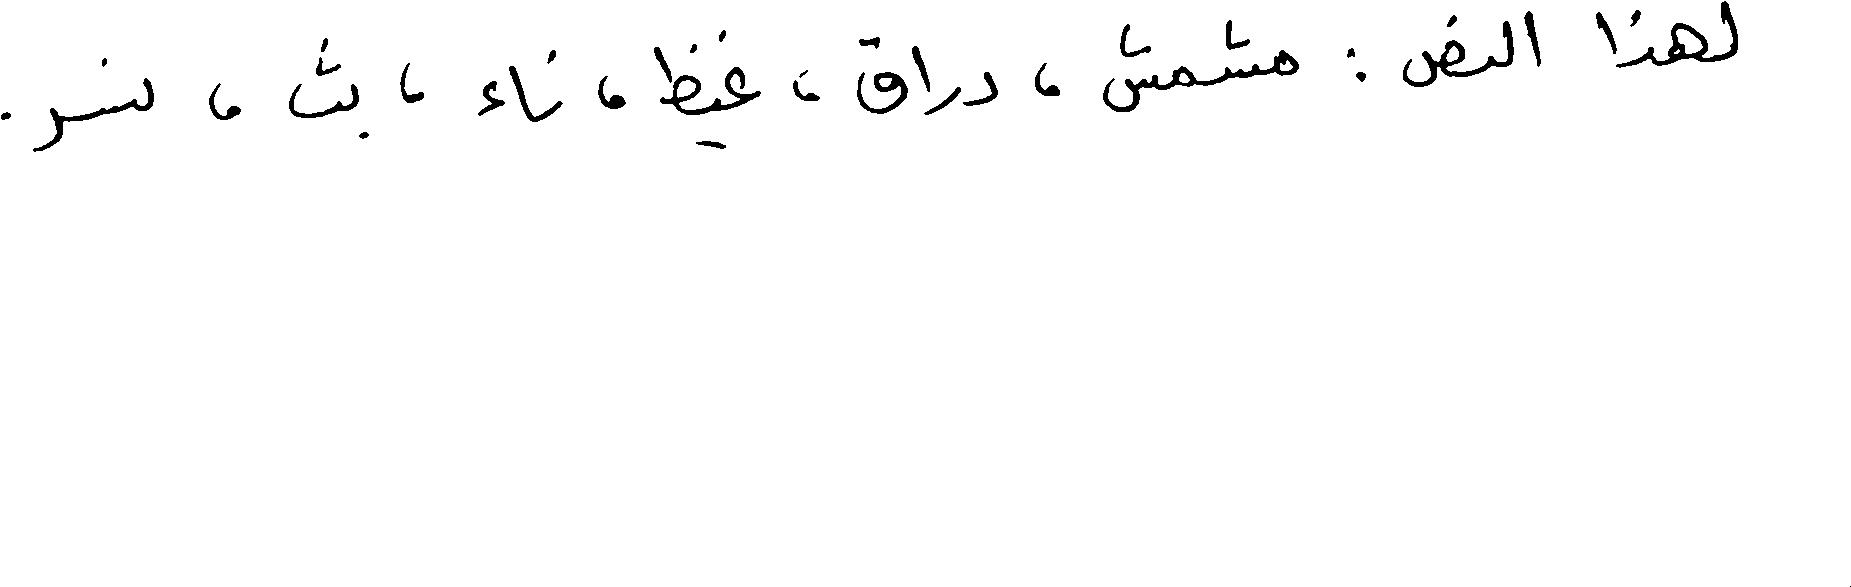 لهذا النص : مشمش ، دراق ، غيظ ، ناء ، بث ، نسر .